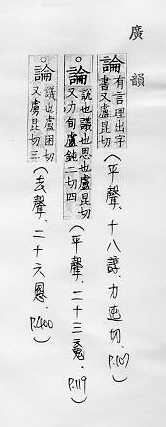 廣韻
論 有言理出字書又盧昆切 (平聲、十八諄、力迍切。P.107)
○論 說也議也思也盧昆切又力旬盧鈍二切四 (平聲、二十三䰟、P.119)
○論 議也盧困切又虜昆切三 (去聲、二十六慁。P.400)